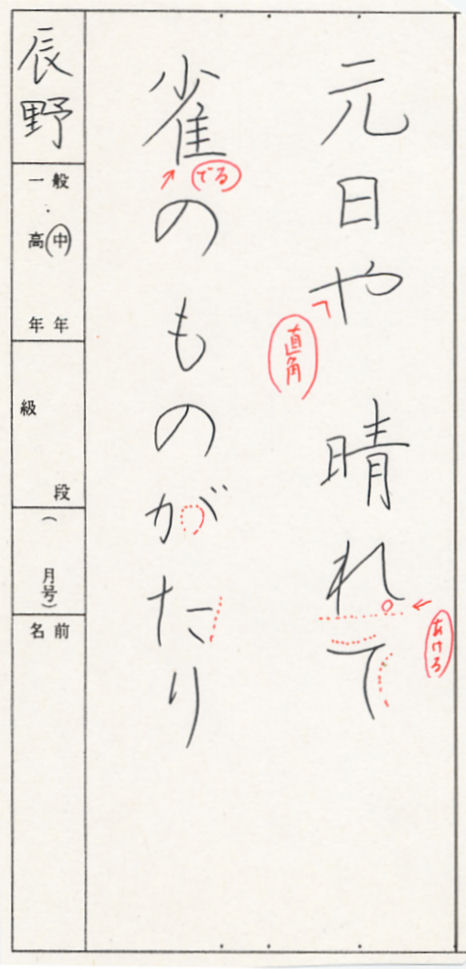 元日や 晴れて
直角
あける
雀のものがたり
でる
辰野
一般
高 中
年 年
級
段
( 月号)
名前